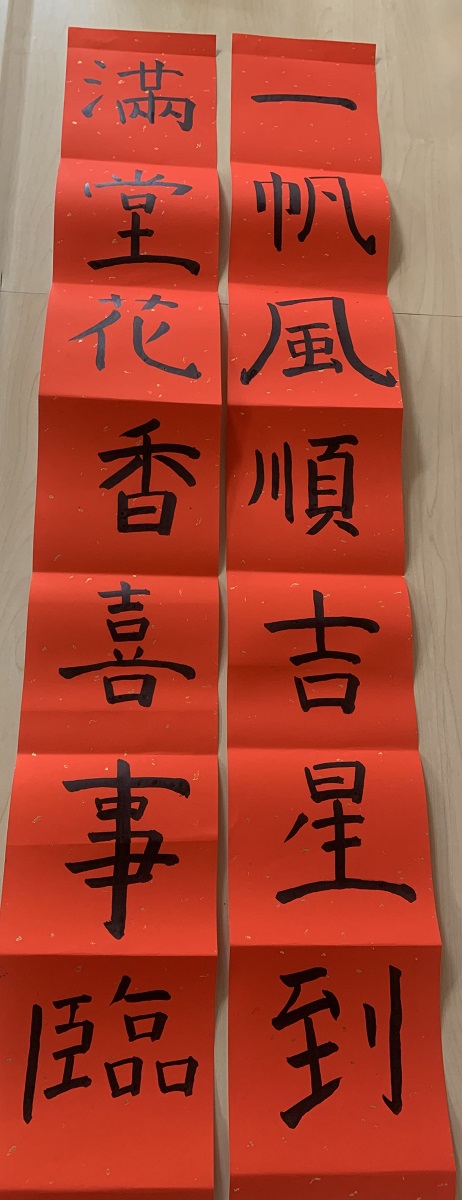 一帆風順吉星到
滿堂花香喜事臨